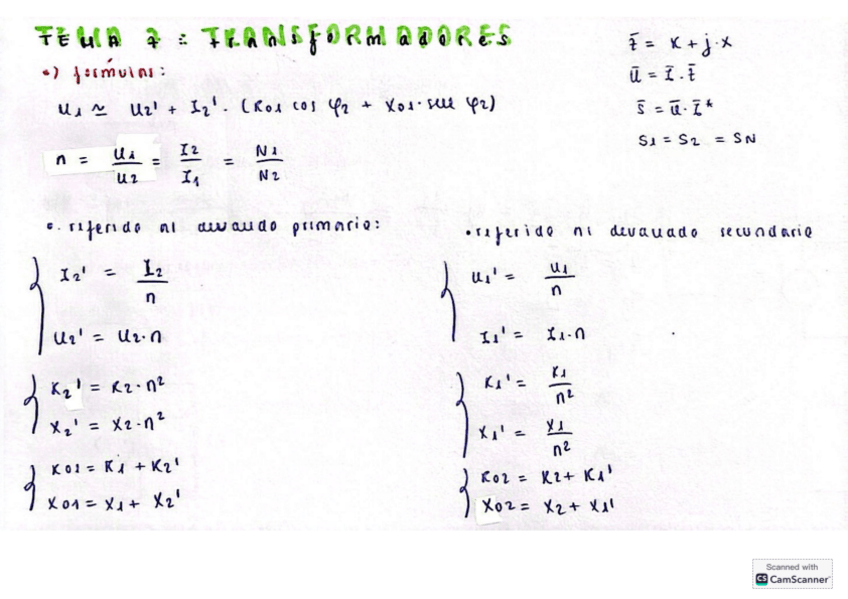 TEMA 7 : TRANSFORMADORES
•) fórmulas:
U1 ≃ U2' + I2' · (R01 cos φ2 + X01 · sen φ2)
n = U1/U2 = I2/I1 = N1/N2
Z̄ = R + j·X
Ū = Ī · Z̄
S̄ = Ū · Ī*
S1 = S2 = SN
•. referido al devanado primario:
I2' = I2/n
U2' = U2·n
R2' = R2·n²
X2' = X2·n²
R01 = R1 + R2'
X01 = X1 + X2'
• referido al devanado secundario
U1' = U1/n
I1' = I1·n
R1' = R1/n²
X1' = X1/n²
R02 = R2 + R1'
X02 = X2 + X1'
Scanned with
CS CamScanner